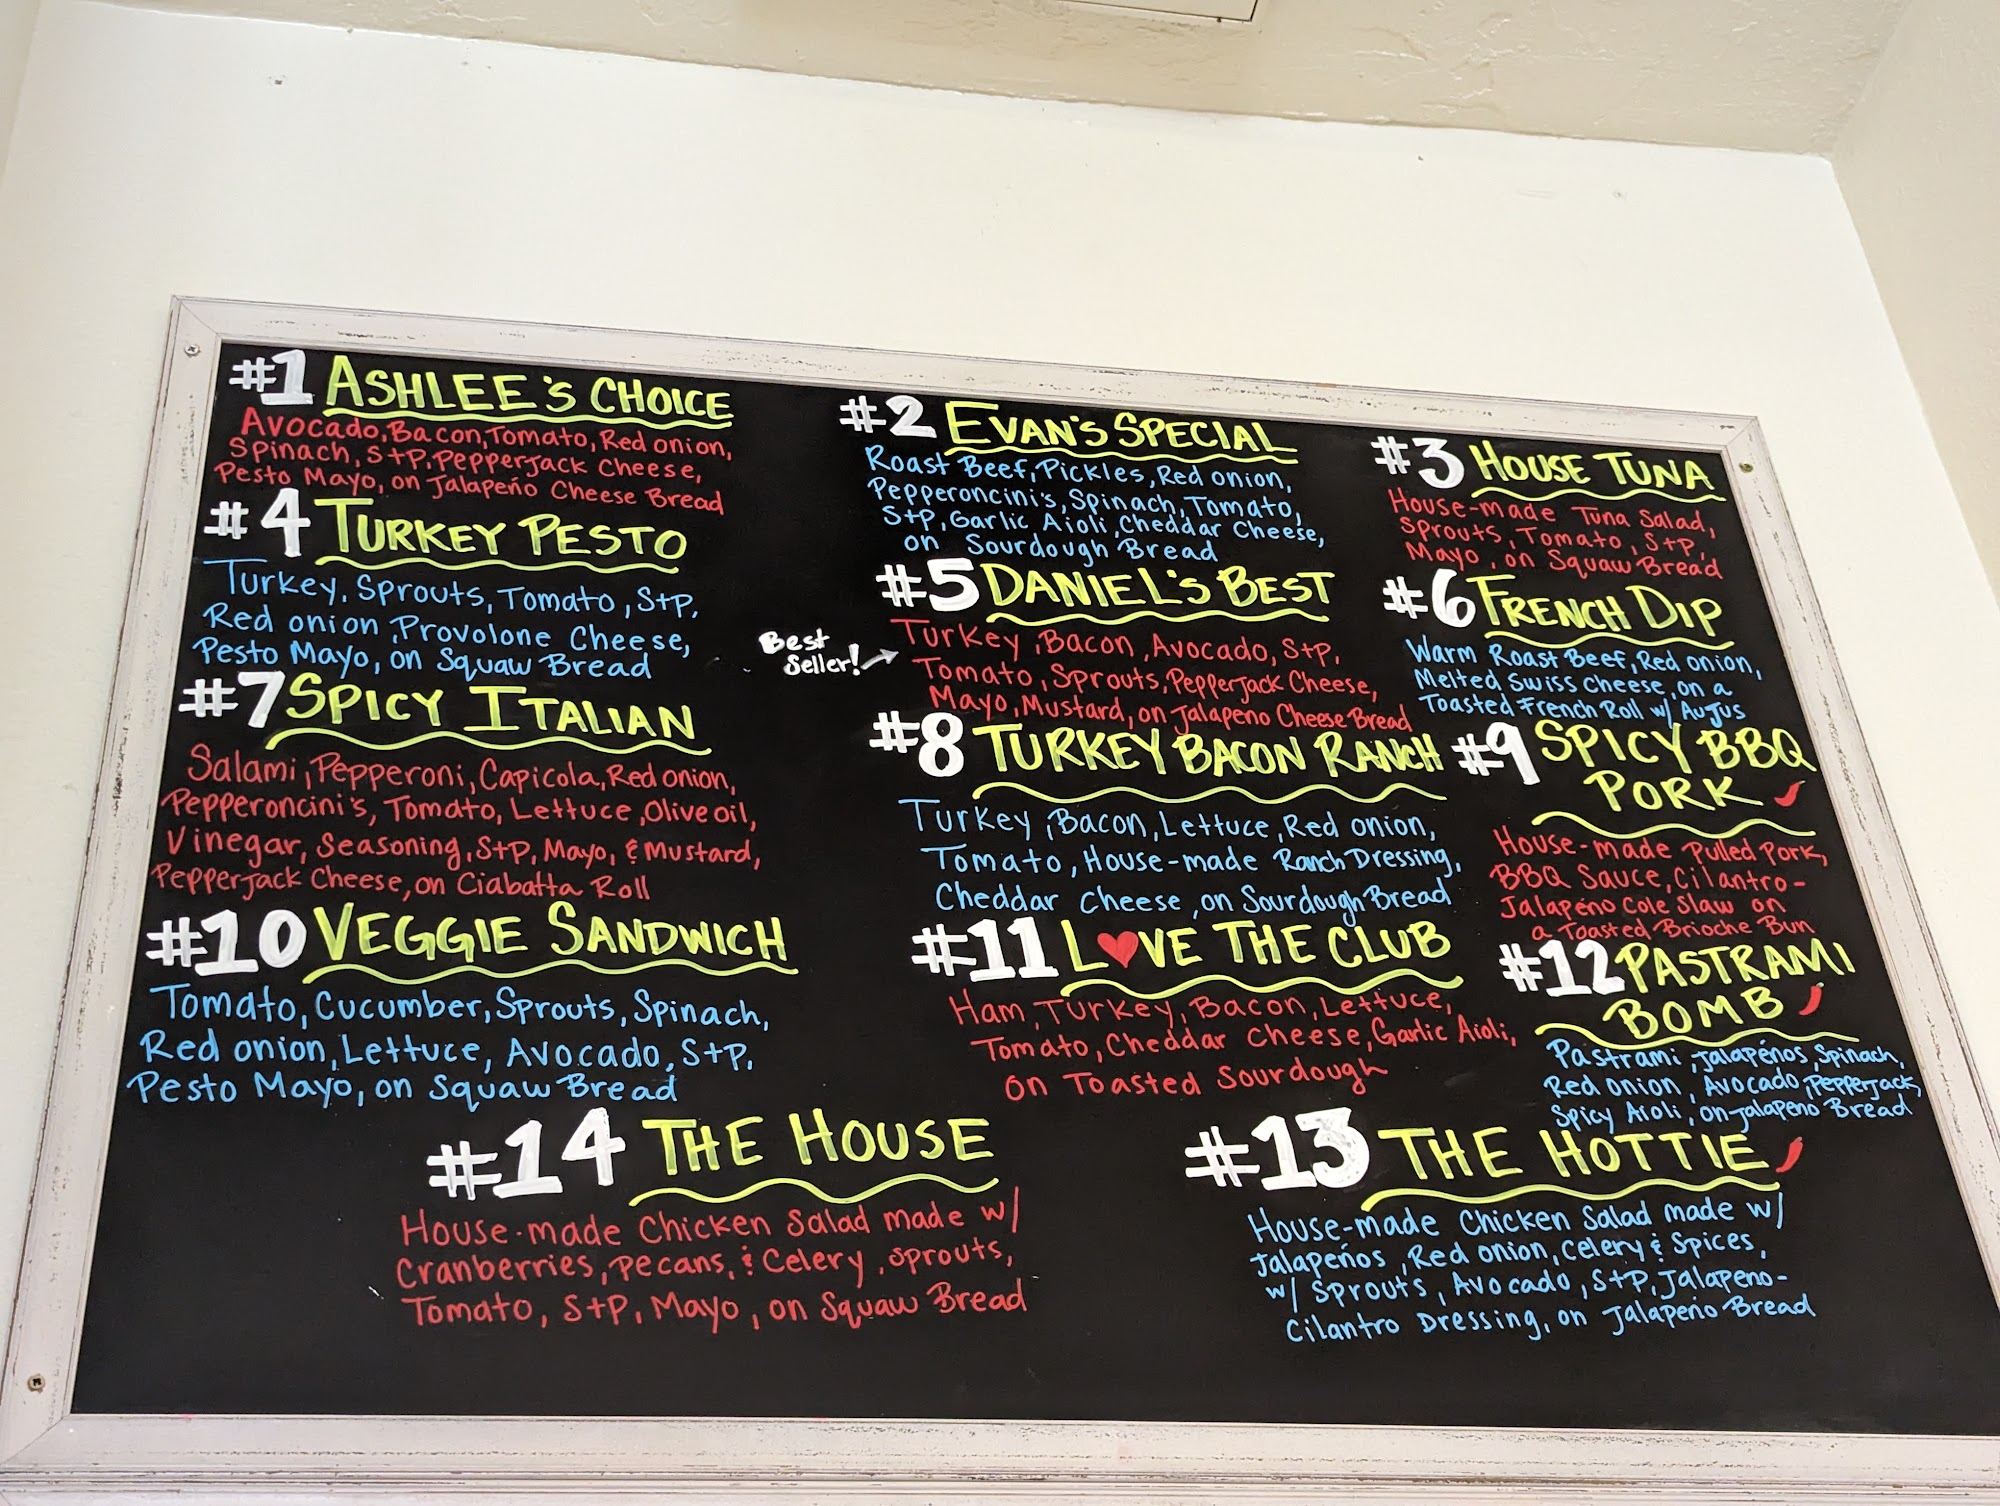 #1 ASHLEE'S CHOICE
Avocado, Bacon, Tomato, Red onion,
Spinach, S+P, Pepperjack Cheese,
Pesto Mayo, on Jalapeño Cheese Bread
#2 EVAN'S SPECIAL
Roast Beef, Pickles, Red onion,
Pepperoncini's, Spinach, Tomato,
S+P, Garlic Aioli, Cheddar Cheese,
on Sourdough Bread
#3 HOUSE TUNA
House-made Tuna Salad,
Sprouts, Tomato, S+P,
Mayo, on Squaw Bread
#4 TURKEY PESTO
Turkey, Sprouts, Tomato, S+P,
Red onion, Provolone Cheese,
Pesto Mayo, on Squaw Bread
Best
Seller!
#5 DANIEL'S BEST
Turkey, Bacon, Avocado, S+P,
Tomato, Sprouts, Pepperjack Cheese,
Mayo, Mustard, on Jalapeno Cheese Bread
#6 FRENCH DIP
Warm Roast Beef, Red onion,
Melted Swiss Cheese, on a
Toasted French Roll w/ AuJus
#7 SPICY ITALIAN
Salami, Pepperoni, Capicola, Red onion,
Pepperoncini's, Tomato, Lettuce, Olive oil,
Vinegar, Seasoning, S+P, Mayo, & Mustard,
Pepperjack Cheese, on Ciabatta Roll
#8 TURKEY BACON RANCH
Turkey, Bacon, Lettuce, Red onion,
Tomato, House-made Ranch Dressing,
Cheddar Cheese, on Sourdough Bread
#9 SPICY BBQ
PORK
House-made Pulled Pork,
BBQ Sauce, Cilantro-
Jalapeño Cole Slaw on
a Toasted Brioche Bun
#10 VEGGIE SANDWICH
Tomato, Cucumber, Sprouts, Spinach,
Red onion, Lettuce, Avocado, S+P,
Pesto Mayo, on Squaw Bread
#11 L♥VE THE CLUB
Ham, Turkey, Bacon, Lettuce,
Tomato, Cheddar Cheese, Garlic Aioli,
on Toasted Sourdough
#12 PASTRAMI
BOMB
Pastrami, Jalapeños, Spinach,
Red onion, Avocado, Pepperjack,
Spicy Aioli, on Jalapeno Bread
#14 THE HOUSE
House-made Chicken Salad made w/
Cranberries, Pecans, & Celery, Sprouts,
Tomato, S+P, Mayo, on Squaw Bread
#13 THE HOTTIE
House-made Chicken Salad made w/
Jalapeños, Red onion, Celery & Spices,
w/ Sprouts, Avocado, S+P, Jalapeno-
Cilantro Dressing, on Jalapeño Bread